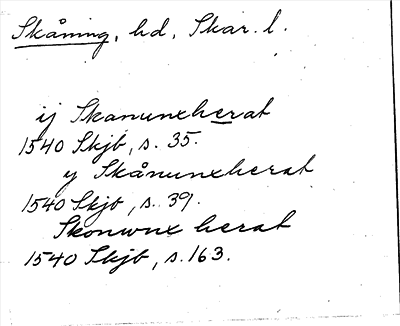 Skåning, hd, Skar. l.
ij Skanunxherat
1540 Skjb, s. 35.
y Skånunxherat
1540 Skjb, s. 39.
Skonwnx herat
1540 Skjb, s. 163.